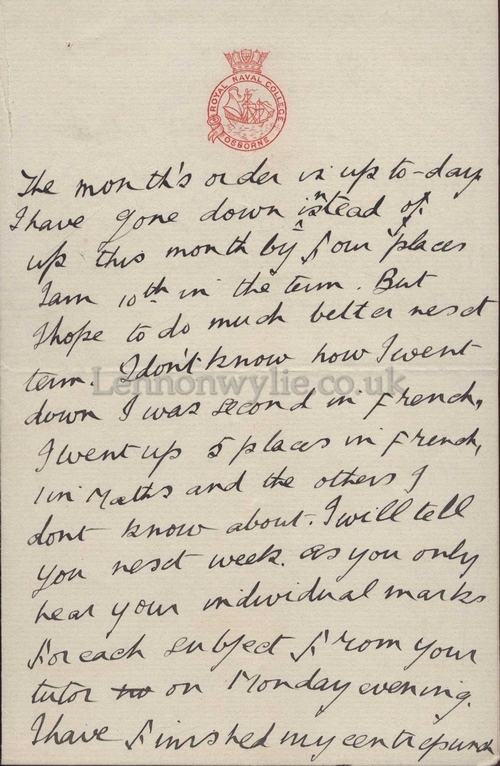 ROYAL NAVAL COLLEGE
OSBORNE
The month's order is up to-day
I have gone down instead of
up this month by four places
I am 10th in the term. But
I hope to do much better next
term. I don't know how I went
Lennonwylie.co.uk
down I was second in French,
I went up 5 places in French,
1 in Maths and the others I
dont know about. I will tell
you next week. as you only
hear your individual marks
for each subject from your
tutor on Monday evening.
I have finished my centrepunch